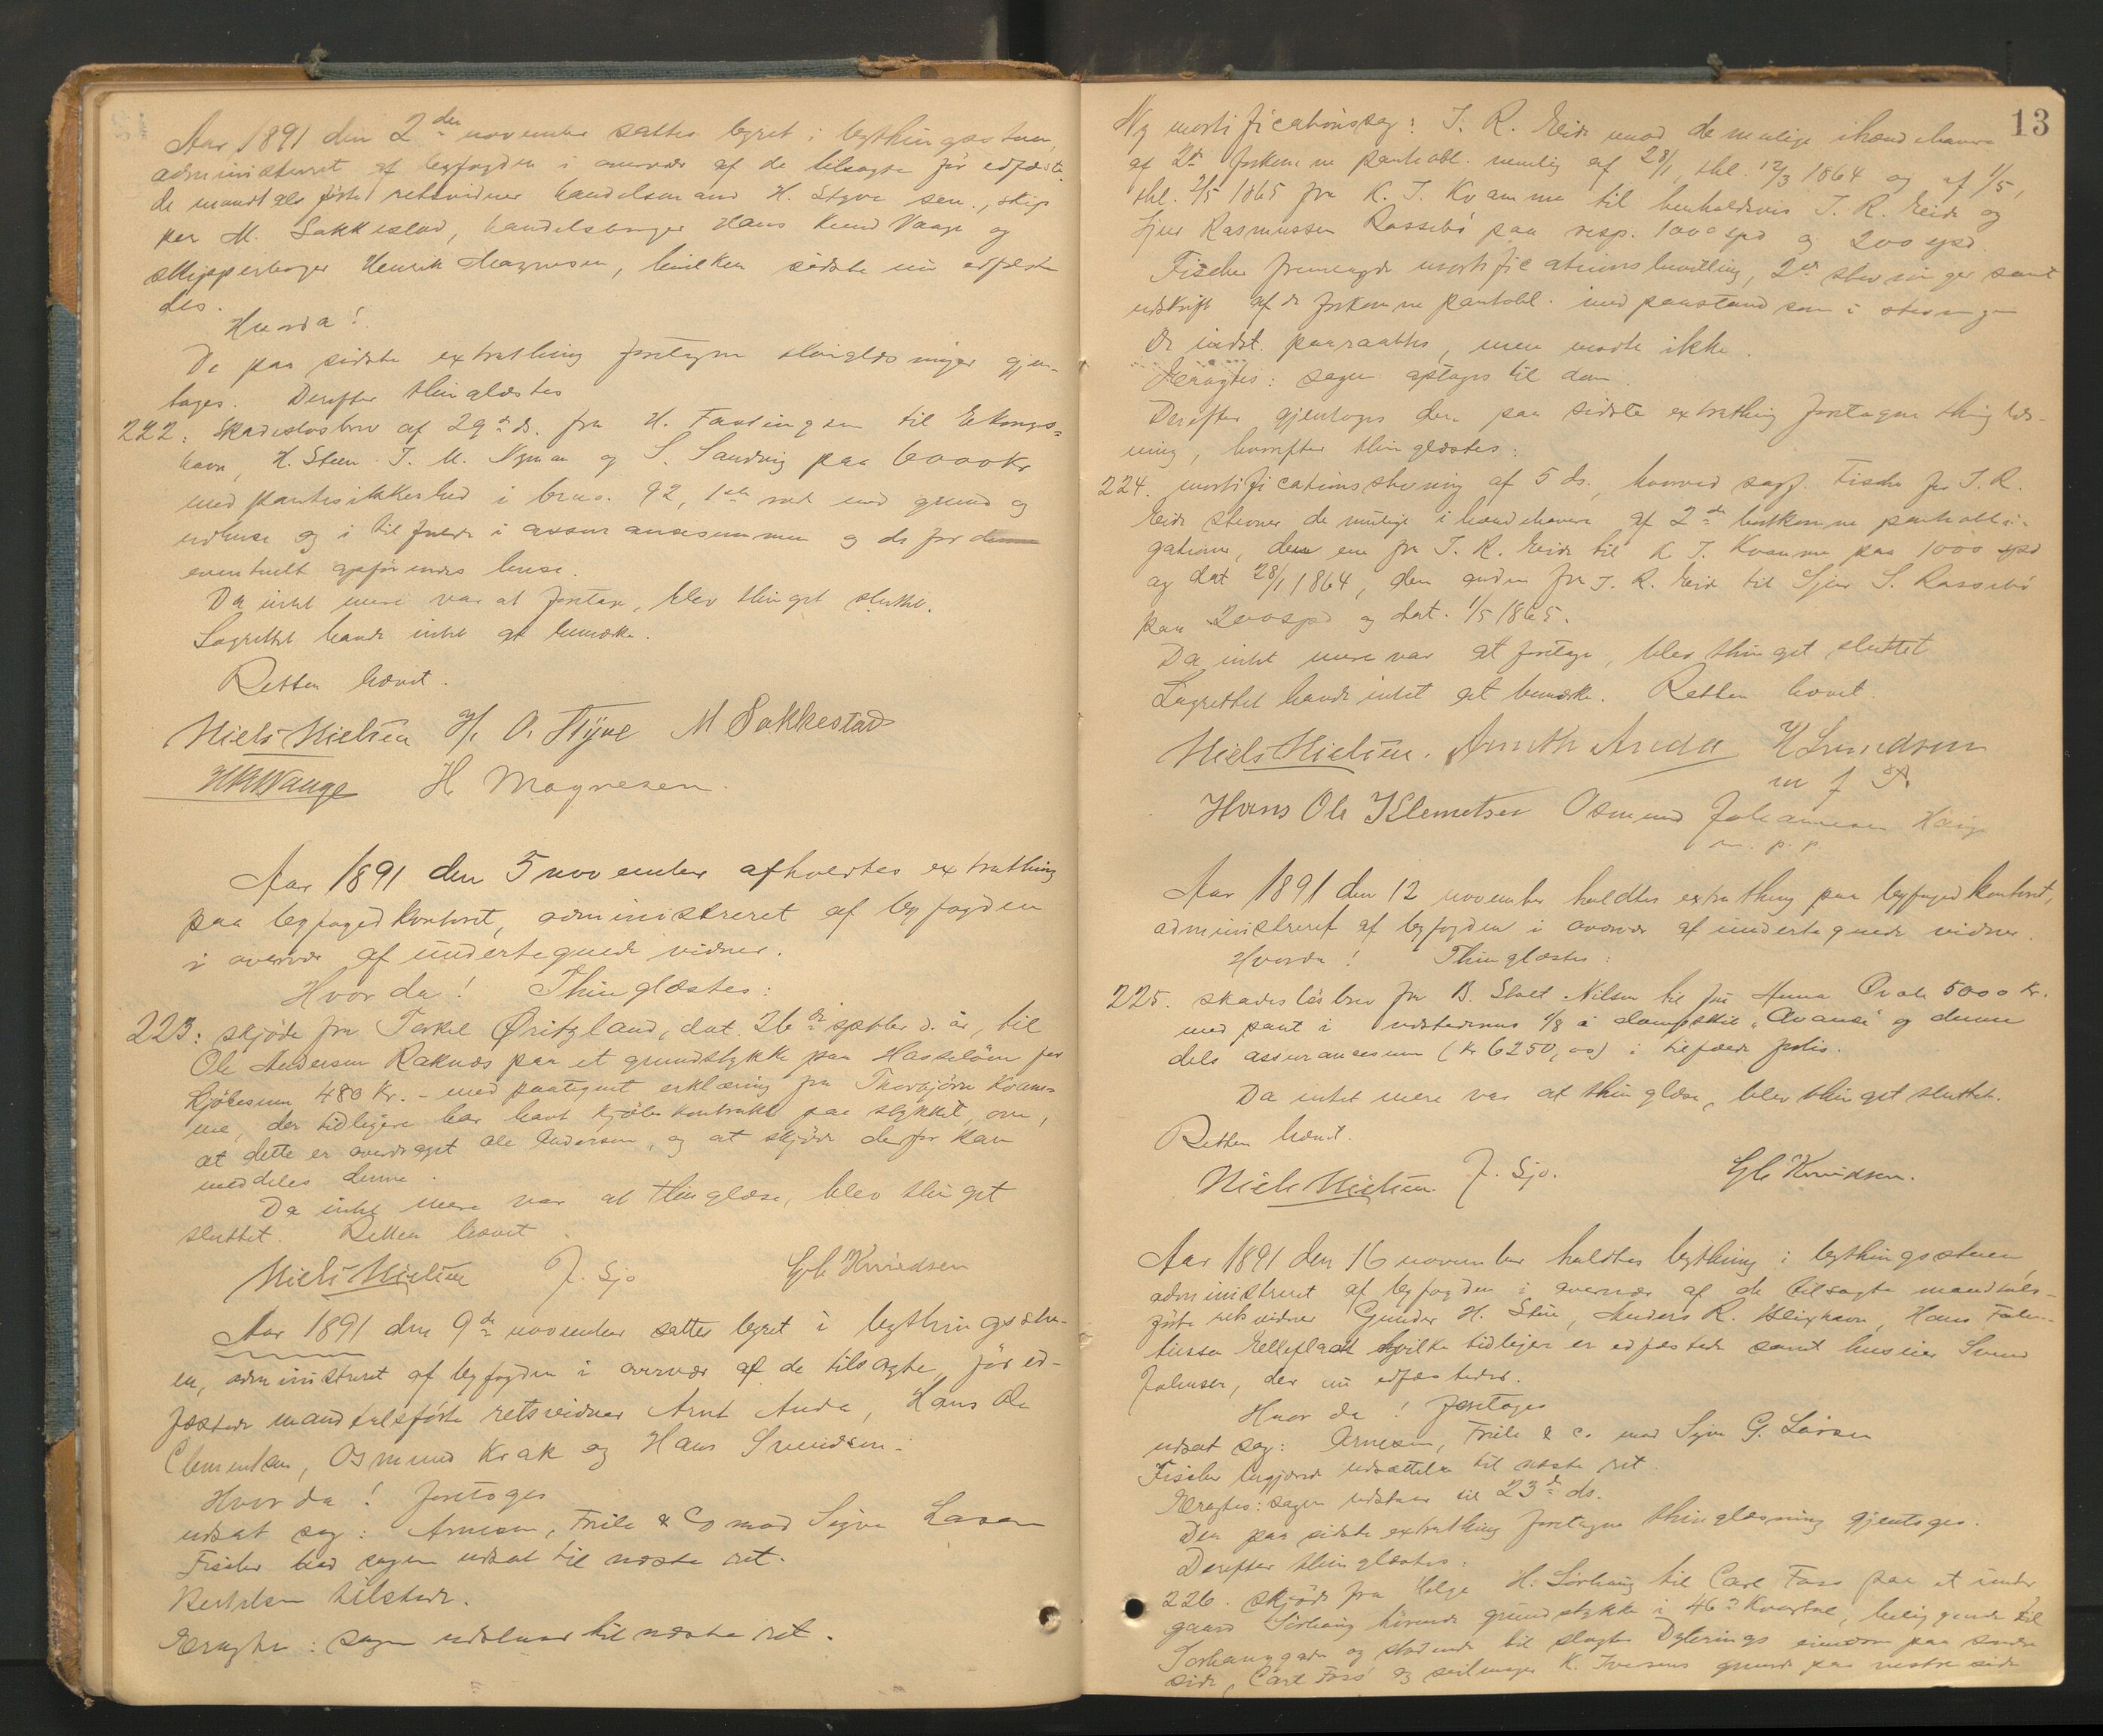 Aar 1891 den 2den november sattes byret i bythingsstuen,
administreret af byfogden i overvær af de tilsagte før edfæste-
de mandtalsførte retsvidner handelsmand H. Styve sen., skip-
per M. Sakkestad, handelsborger Hans Knud Vaage og
skipperborger Henrik Magnesen, hvilken sidste nu edfæste-
des.
Hvorda!
De paa sidste extrathing foretagne thinglæsninger gjen-
toges. Derefter thinglæstes
222: Skadesløsbrev af 29de ds. fra H. Fastingsen til
havn, H. Steen J. M. Nyman og S. Sandvig paa 6000 kr
med pantesikkerhed i brno. 92, 1ste rode med grund og
udhuse og i tilfælde i assuranasesummen og de for den
eventuelt opførendes huse.
Da intet mere var at foretage, blev thinget sluttet.
Lagrettet havde intet at bemærke.
Retten hævet.
Niels Nielsen H. O. Styve M Sakkestad
HKWaage H. Magnesen.
Aar 1891 den 5 november afholdtes extrathing
paa byfogedkontoret, administreret af byfogden
i overvær af undertegnede vidner.
Hvorda! Thinglæstes:
223: skjøde fra Torkel Øritzland, dat. 26de septbr d. år, til
Ole Andersen Raknæs paa et grundstykke paa Hasseløen for
kjøbesum 480 Kr. - med paategnet erklæring fra Thorbjørn Kvam-
me, der tidligere har havt kjøbekontrakt paa stykket, om,
at dette er overdraget Ole Andersen, og at skjøde derfor kan
meddeles denne.
Da intet mere var at thinglæse, blev thinget
sluttet. Retten hævet.
Niels Nielsen J. Sjo Gb Knudsen
Aar 1891 den 9de november sattes byret i bythingsstu-
en, administreret af byfogden i overvær af de tilsagte, før ed-
fæstede mandtalsførte retsvidner Arnt Anda, Hans Ole
Clementsen, Osmund Krak og Hans Svendsen.
Hvorda! foretoges
udsat sag: Arnesen, Friele & Co mod Sigva Lasen
Fischer bad sagen udsat til næste ret.
Bertelsen tilstede.
Eragtes: sagen udstaar til næste ret.
13
Ny mortificationssag: J. R. Eide mod de mulige ihændehavere
af 2de forkomne pantobl. nemlig af 28/1, thl. 12/3 1864 og af 1/5,
thl. 2/5 1865 fra K. J. Kvamme til henholdsvis J. R. Eide og
Sjur Rasmussen Rossebø paa resp. 1000 spd og 200 spd.
Fischer fremlagde mortificationsbevilling, 2de stevninger samt
udskrift af de forkomne pantobl. med paastand som i stevningen
De indst. paaraabtes, men mødte ikke.
Eragtes: sagen optages til dom.
Derefter gjentoges den paa sidste extrathing foretagne thinglæs-
ning, hvorefter thinglæstes:
224. mortificationsstevning af 5 ds., hvorved sagf. Fischer for J. R.
Eide stevner de mulige ihændehavere af 2de bortkomne pantobli-
gationer, den ene fra J. R. Eide til K. J. Kvamme paa 1000 spd
og dat 28/1 1864, den anden fra J. R. Eide til Sjur S. Rossebø
paa 200 spd og dat. 1/5 1865.
Da intet mere var at foretage, blev thinget sluttet
Lagrettet havde intet at bemærke. Retten hævet.
Niels Nielsen. Arnth Anda H Svendsen
m f P.
Hans Ole Klemetsen Osmund Johannesen
m. p. p.
Aar 1891 den 12 november holdtes extrathing paa byfogedkontoret,
administreret af byfogden i overvær af undertegnede vidner.
Hvorda! Thinglæstes:
225. skadesløsbrev fra B. Stolt Nilsen til frk Anna Qvale 5000 Kr.
med pant i udstederens 1/8 i dampskib "Avance" og denne
dels assurancesum (kr 6250,00) i tilfælde polis.
Da intet mere var at thinglæse, blev thinget sluttet.
Retten hævet.
Niels Nielsen. J. Sjo. Gb Knudsen.
Aar 1891 den 16 november holdtes bything i bythingsstuen,
administreret af byfogden i overvær af de tilsagte mandtals-
førte retsvidner Gunder H. Stue, Anders R. Bleivik, Hans
hvilke tidligere er edfæstede samt huseier Svend
Johnsen, der nu edfæstedes.
Hvor da! foretoges
udsat sag: Arnesen, Friele & Co mod Sigva G. Larsen
Fischer begjærede udsættelse til næste ret.
Eragtes: sagen udstaar til 23de ds.
Den paa sidste extrathing foretagne thinglæsning gjentoges.
Derefter thinglæstes:
226. skjøde fra Helge H. Sørhaug til Carl Foss paa et under
gaard Sørhaug hørende grundstykke i 46de kvartal, beliggende til
Sørhauggaden og stødende til slagter Dyrings eiendom paa søndre
side, Carl Foss' og seilmager K. Iversens grunde paa vestre side